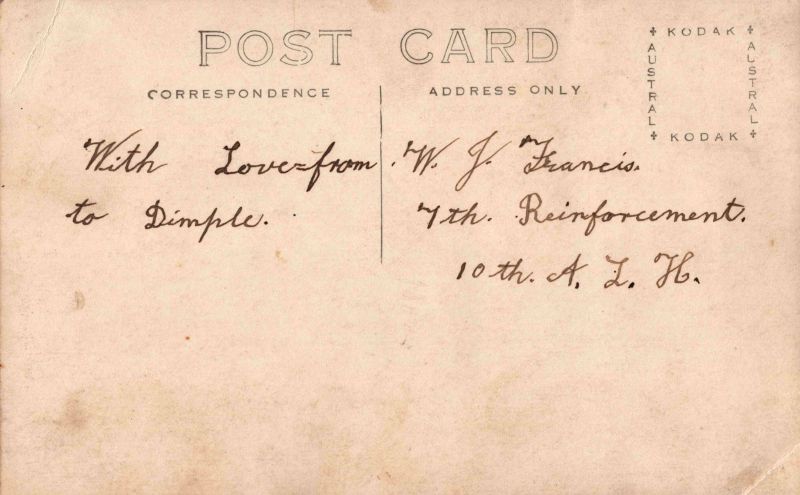 POST CARD
KODAK
AUSTRAL
AUSTRAL
KODAK
CORRESPONDENCE
ADDRESS ONLY
With Love=from
to Dimple.
W. J. Francis.
7th. Reinforcement.
10th. A. L. H.